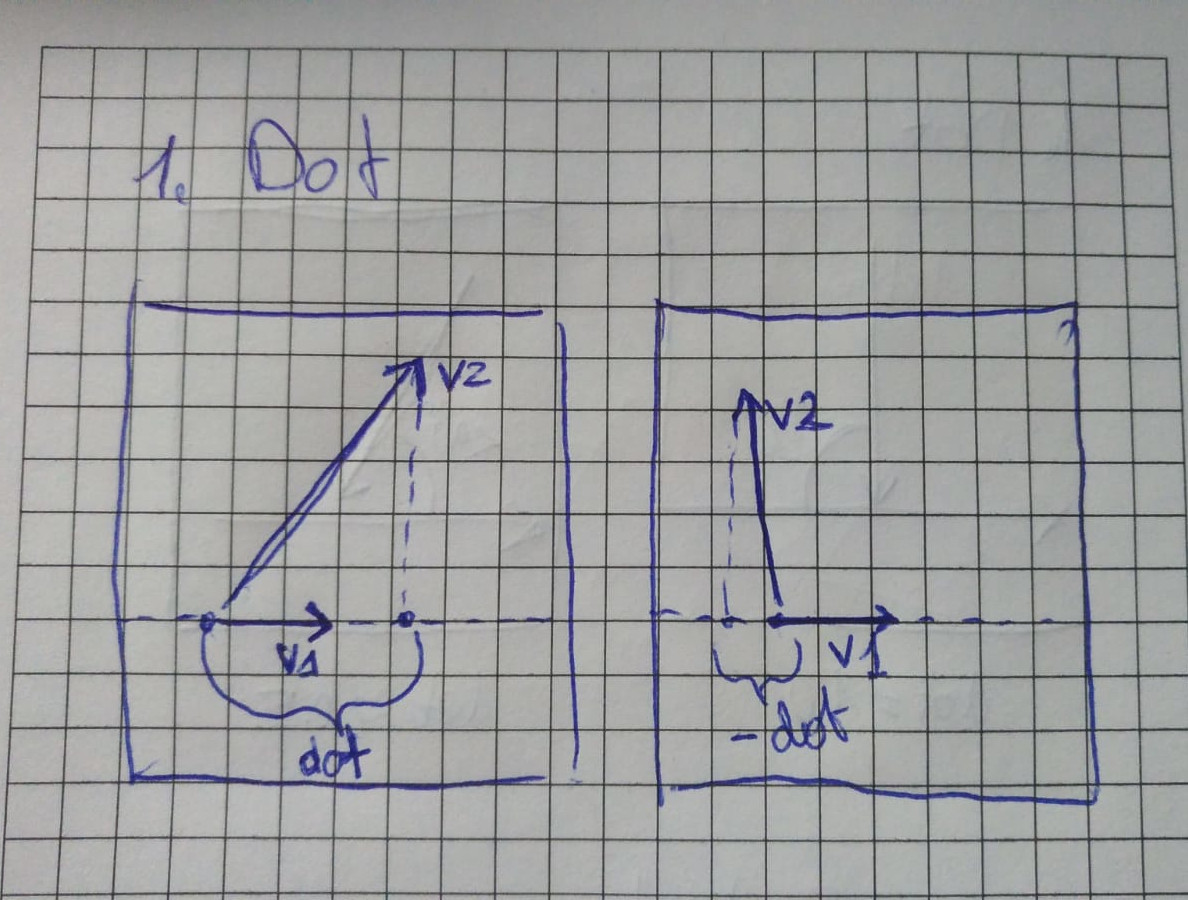 1. Dot
V2
V1
dot
V2
V1
-dot